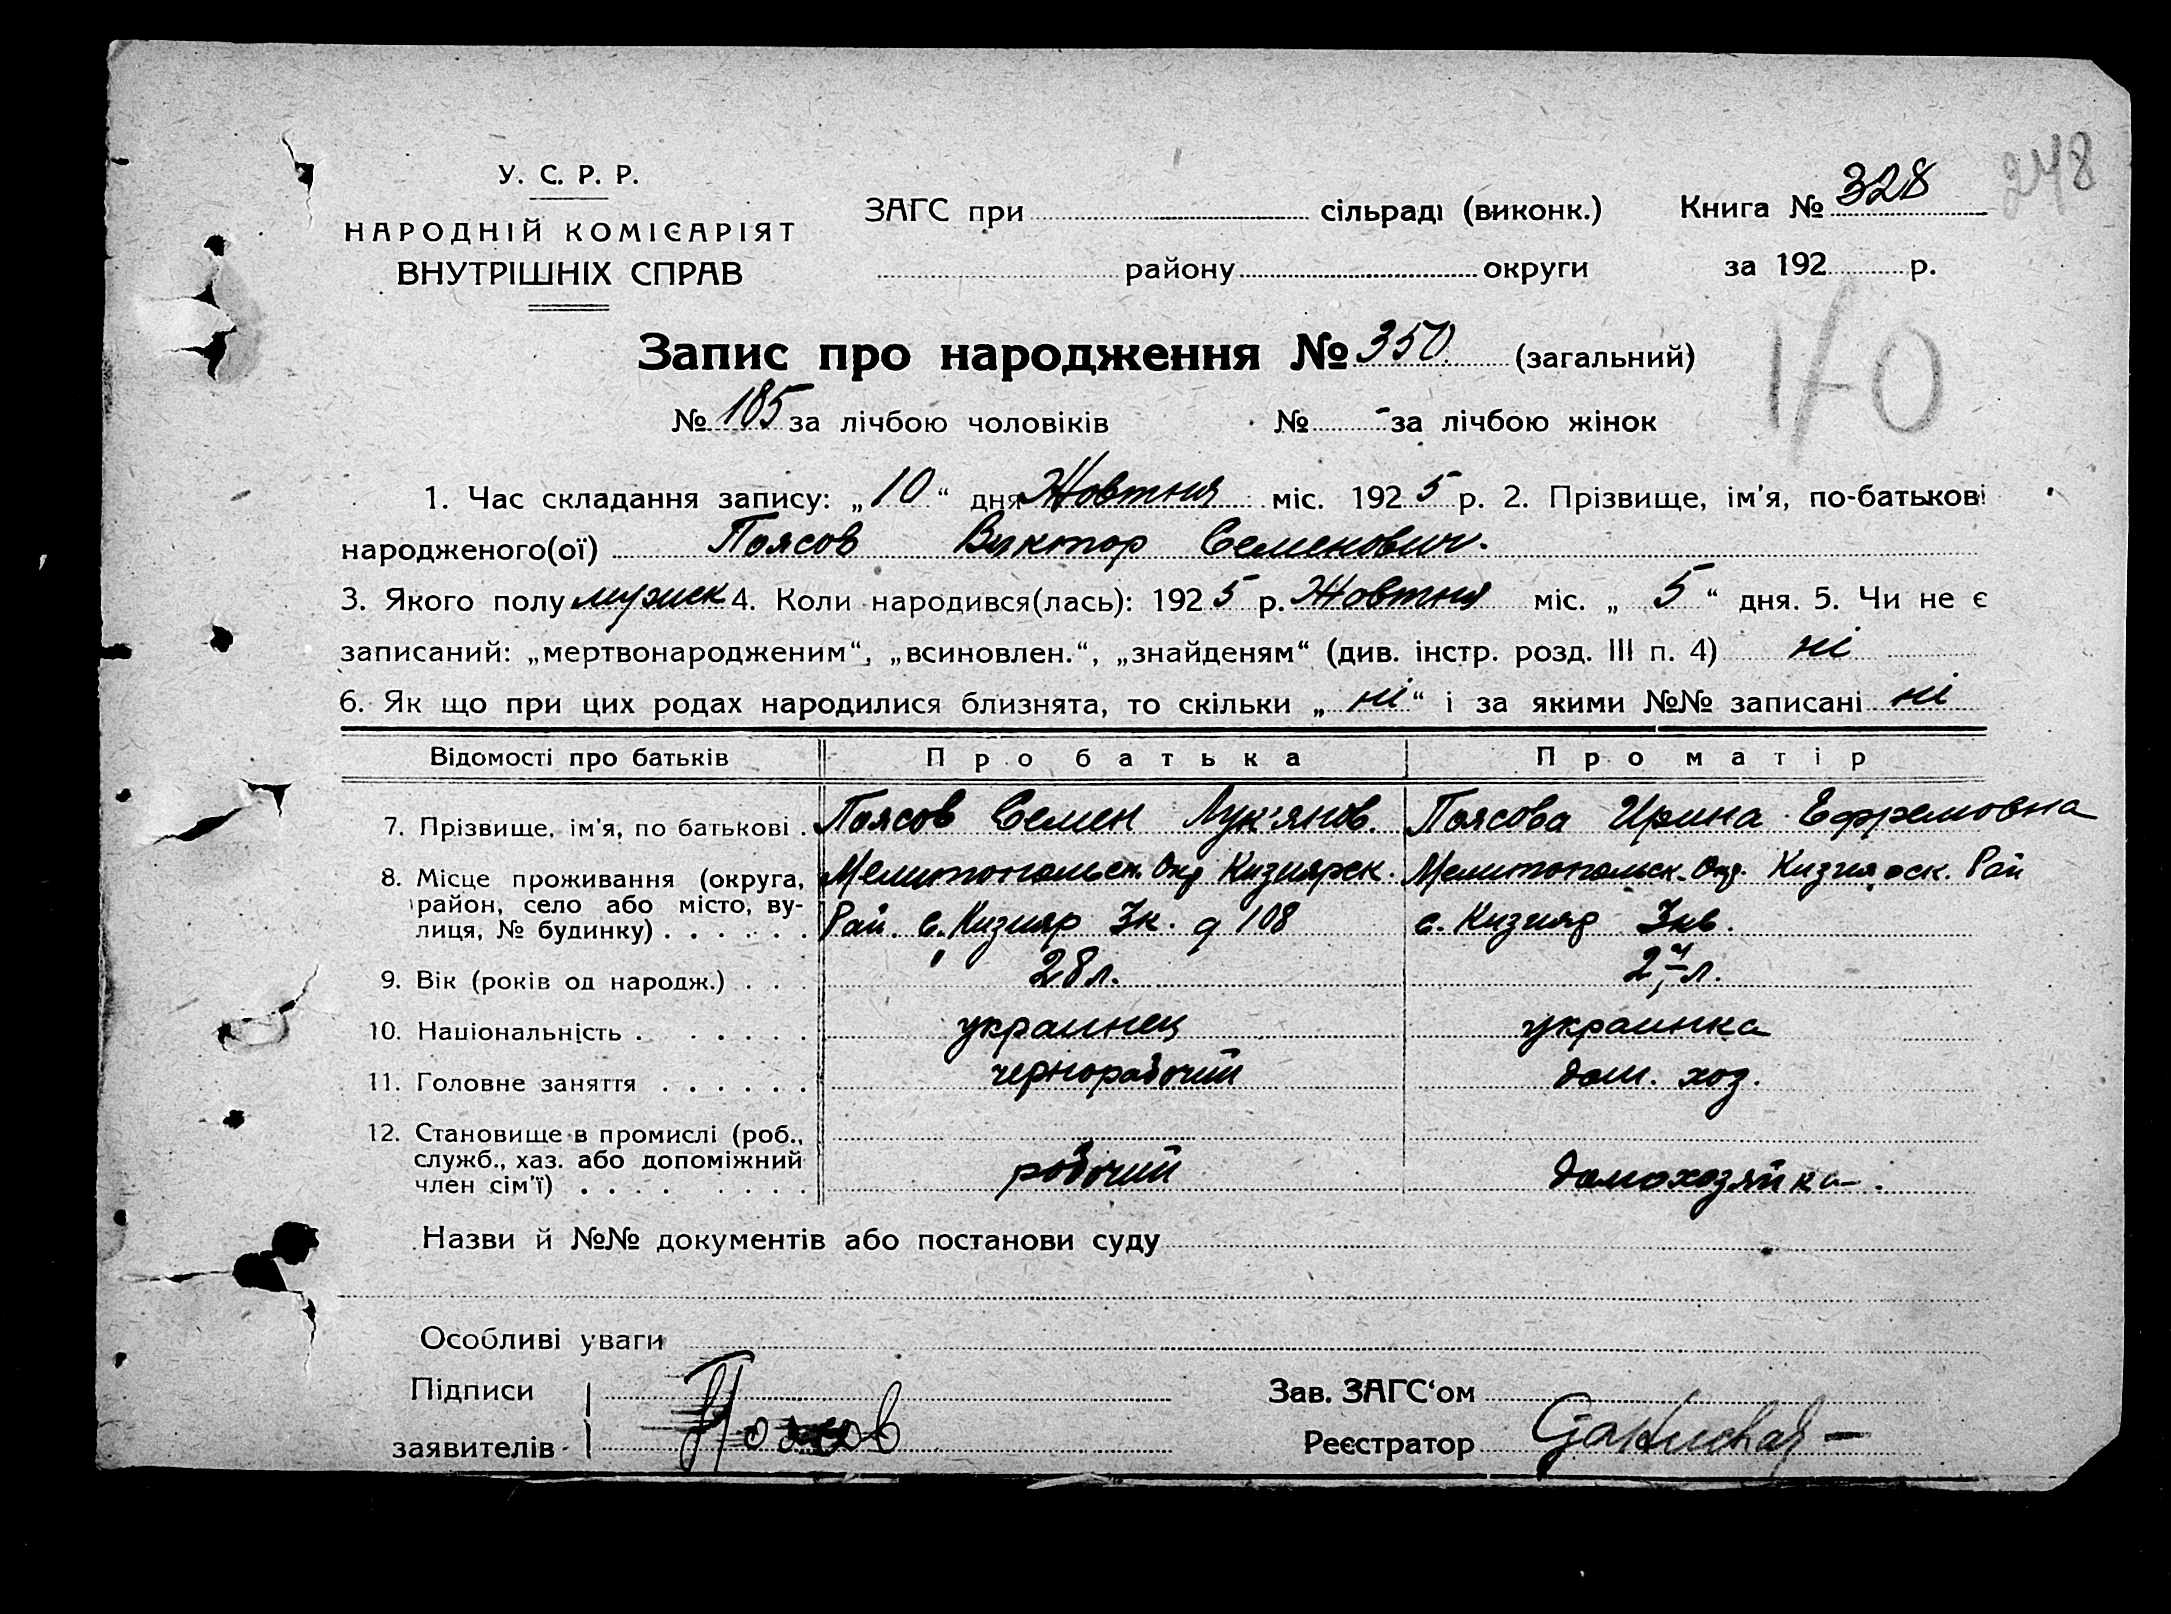 248
У. С. Р. Р.
НАРОДНІЙ КОМІСАРІЯТ
ВНУТРІШНІХ СПРАВ
ЗАГС при сільраді (виконк.)
району округи
Книга № 328
за 192 р.
Запис про народження № 350 (загальний)
170
№ 185 за лічбою чоловіків № - за лічбою жінок
1. Час складання запису: „10“ дня Жовтня міс. 1925 р. 2. Прізвище, ім'я, по-батькові
народженого(ої) Поясов Виктор Семенович.
3. Якого полу мужеск 4. Коли народився(лась): 1925 р. Жовтня міс. „5“ дня. 5. Чи не є
записаний: „мертвонародженим“, „всиновлен.“, „знайденям“ (див. інстр. розд. III п. 4) ні
6. Як що при цих родах народилися близнята, то скільки „ні“ і за якими №№ записані ні
Відомості про батьків Про батька Про матір
7. Прізвище, ім'я, по батькові . Поясов Семен Лук'янов. Поясова Ирина Ефремовна
8. Місце проживання (округа, Мелитопольск. Окр Кизиярск. Мелитопольск. Окр. Кизиярск. Рай
район, село або місто, ву-
лиця, № будинку) . . . . . . Рай. с. Кизияр Зк. д 108 с. Кизияр
9. Вік (років од народж.) . . . 28 л. л.
10. Національність . . . . . . украинец украинка
11. Головне заняття . . . . . . чернорабочий дом. хоз.
12. Становище в промислі (роб.,
служб., хаз. або допоміжний
член сім'ї) . . . . . . . . робочий домохозяйка.
Назви й №№ документів або постанови суду
Особливі уваги
Підписи
заявителів Поясов
Зав. ЗАГС‘ом
Реєстратор